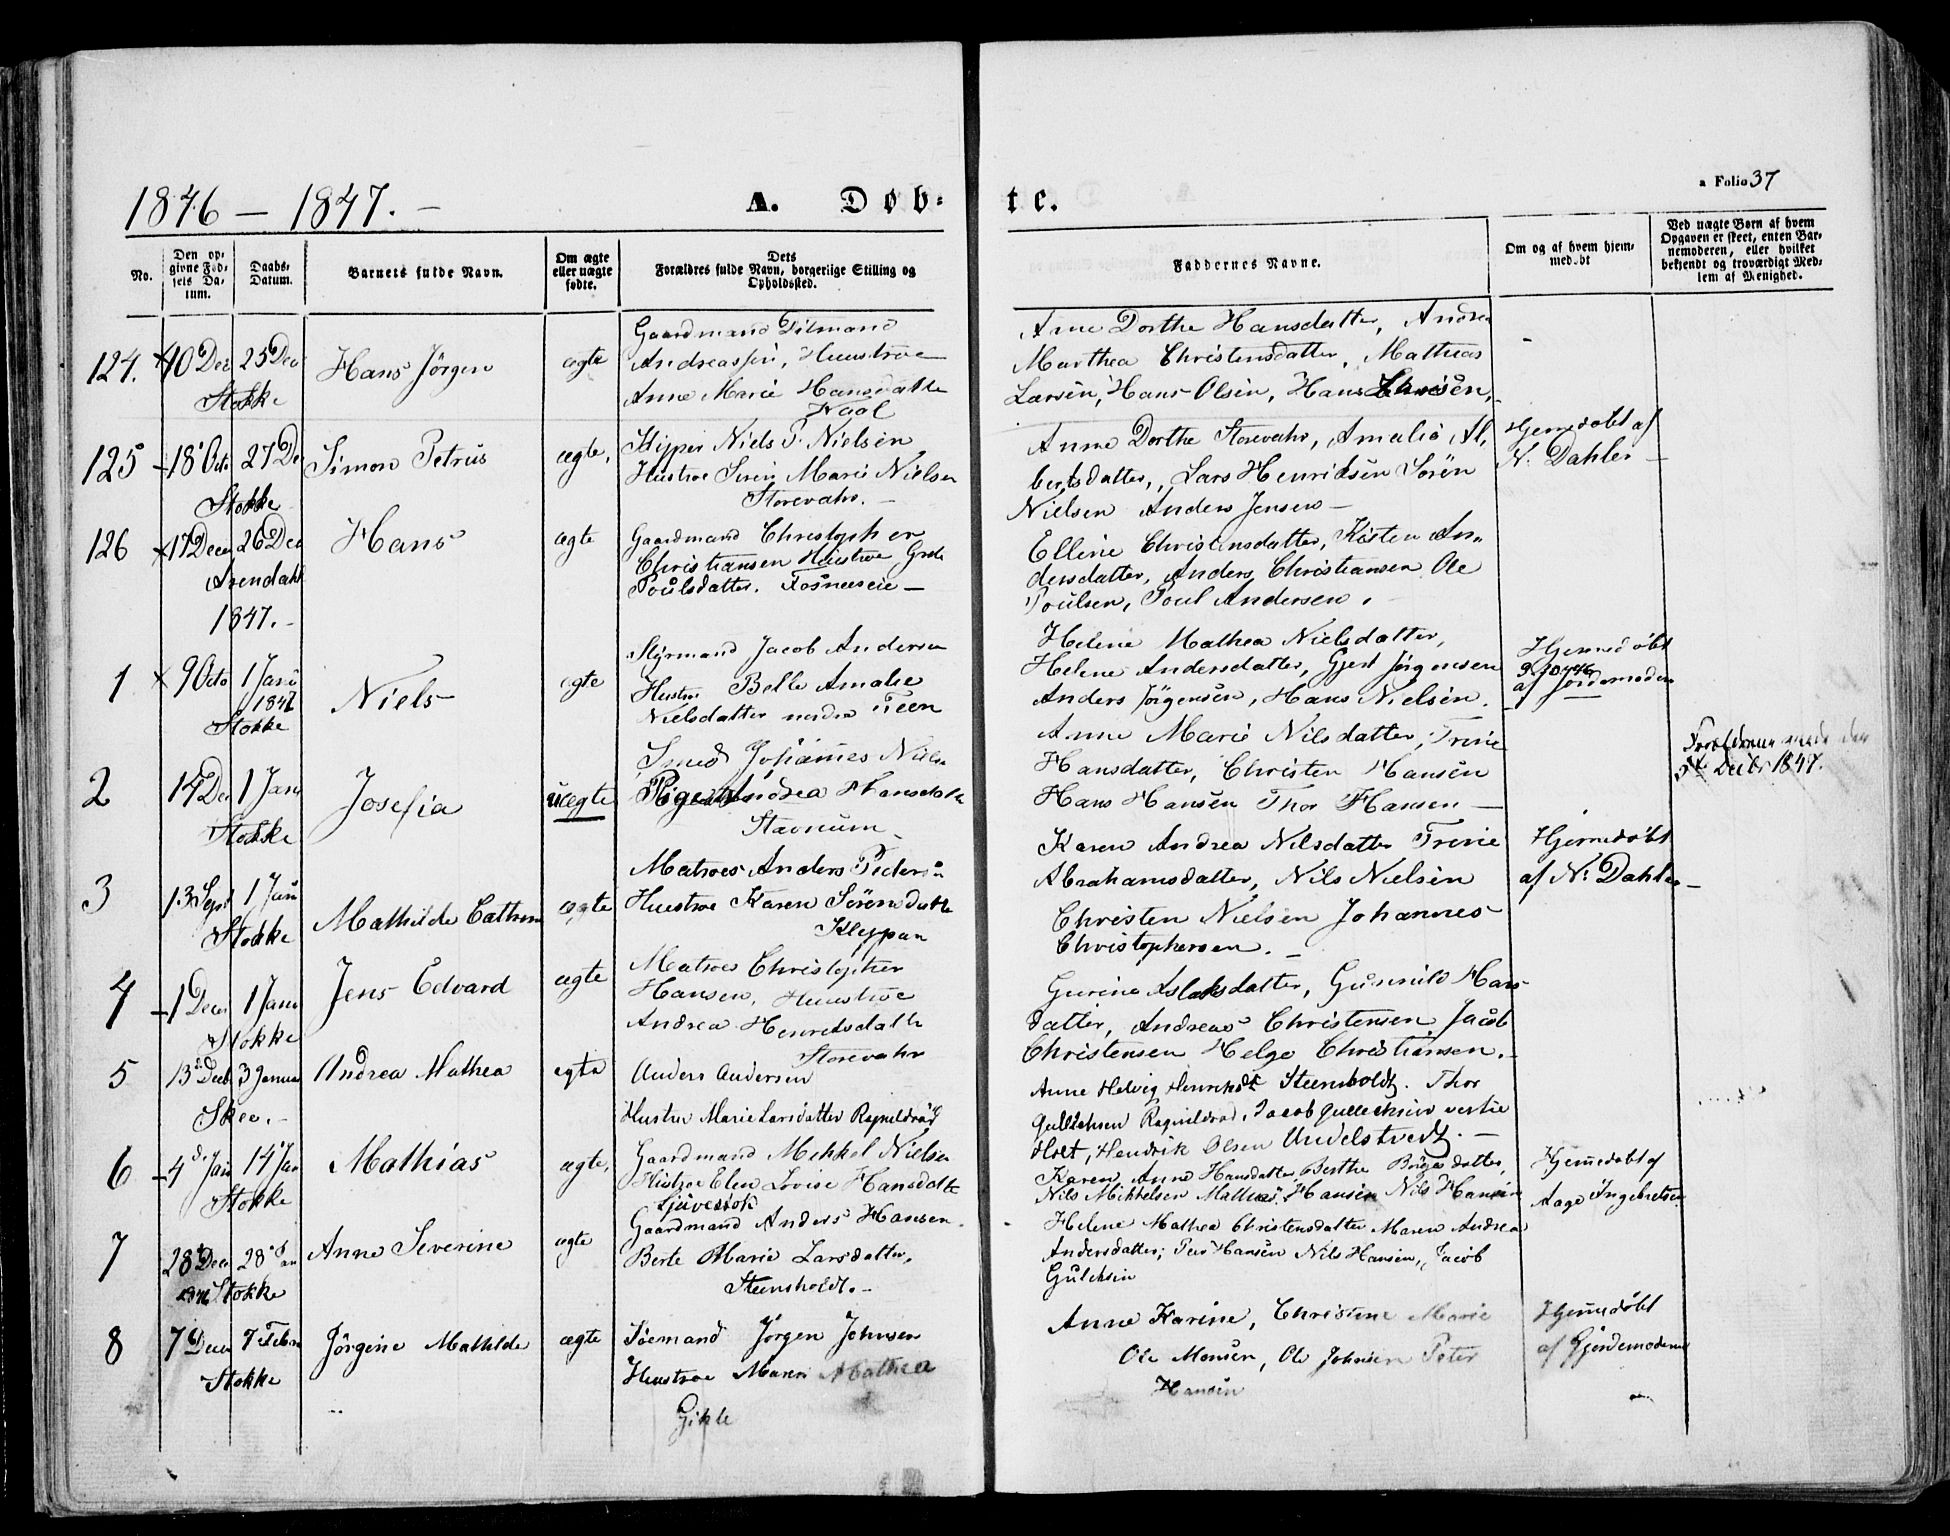 a Folio 37
1846 — 1847. —
A. Døb-
te.
No.
Den op-
givne Fød-
sels Da-
tum.
Daabs-
Datum.
Barnets fulde Navn.
Om ægte
eller uægte
fødte.
Dets
Forældres fulde Navn, borgerlige Stilling og
Opholdssted.
Faddernes Navne.
Om og af hvem hjem-
medøbt
Ved uægte Børn af hvem
Opgaven er skeet, enten Bar-
nemoderen, eller hvilket
bekjendt og troværdigt Med-
lem af Menighed.
124. 10 Dec 25 Dec
Stokke
Hans Jörgen
ægte
Gaardmand Tilmand
Andreassen, Huustroe
Anne Marie Hansdatter
Anne Dorthe Hansdatter, Andrea
Marthea Christensdatter, Mathias
Larsen, Hans Olsen, Hans
125 18 Octo 27 De
Stokke
Simon Petrus
ægte,
Skipper Niels P. Nielsen
Hustroe Siren Marie Nielsen
Storevahr. —
Anne Dorthe Storevahr, Amalie Al,
bertsdatter, Lars Henriksen Sören
Nielsen Anders Jensen —
Hjemedöbt af
N. Dahler —
126 17 Decem 26 Dec
Arendahl
Hans
ægte
Gaardmand Christopher
Christiansen Huistroe Grete
Poulsdatter. Fosneseie —
Elline Christensdatter, Kisten An„
dersdatter, Anders Christiansen Ole
Poulsen, Poul Andersen.
1847. —
1 9 Octo 1 Janu
1847
Stokke
Niels
egte
Styrmand Jacob Andersen
Hustro Belle Amalie
Nielsdatter nedre Feen
Helene Mathea Nielsdatter,
Helene Andersdatter, Gjert Jörgensen
Anders Jörgensen, Hans Nielsen.
Hjemmedöbt
9.10.46
af Jordemoderen
2 14 De 1 Janu
Stokke
Josefia
uægte
Smed Johannes Nielsen
Pigen Andrea Hansdatter
Stavnum
Anne Marie Nilsdatter, Trine
Hansdatter, Christen Hansen
Hans Hansen Thor Hansen —
Forældrene viede den
Decbr 1847.
3 13 Sept 1 Jan
Stokke
Mathilde Cathrin
ægte
Matroes Anders Peders:n
Huustroe Karen Sörensdatte
Kleppan
Karen Andrea Nilsdatter Trine
Abrahamsdatter, Nils Nielsen
Christen Nielsen Johannes
Christophersen. —
Hjemedöbt
af N. Dahler —
4 1 Decem 1 Janu
Stokke
Jens Edvard
ægte
Matroes Christopher
Hansen, Huustroe
Andrea Henriksdatte
Storevahr
Gurine Aslaksdatter, Gunnild Hans
datter, Andreas Christensen Jacob
Christensen Helge Christiansen. —
5 13 Decb 3 Januar
Skee. —
Andrea Mathea
egte
Anders Andersen
Hustru Marie Larsdatter Ragnildröd
Anne Helvig Henriksdt Steensholdt. Thor
Gullichsen Ragnildröd, Jacob Gullechsen vestre
Holt, Hendrik Olsen Undelstvedt. —
6 4 Jan 14 Jan
Stokke
Mathias
ægte,
Gaardmand Mekkel Nielsen
Histroe Elen Lovise Hansdatte
Karen Anne Hansdatter, Berthe Börgesdatter,
Nils Mikkelsen Mathias Hansen Nils Hansen
Hjemedöbt af
Aage Ingebretsen
7 28 Dec 28 Jan
1846 Stokke
Anne Severine
ægte
Gaardmand Anders Hansen
Berte Marie Larsdatter,
Steensholdt. —
Helene Mathea Christensdatter Maren Andrea
Andersdatter; Peer Hansen Nils Hansen, Jacob
Gulichsen
8 7 Decem 7 Febru
Stokke
Jörgine Mathilde
ægte
Söemand Jörgen Johnsen
Huustroe Maren Mathea
Anne Karine, Christine Marie
Ole Monsen, Ole Johnsen Peter
Hansen
Hjemedöbt
af Gjordemoderen